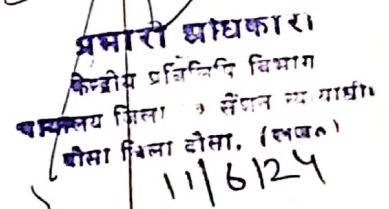 प्रभारी अधिकारी
केन्द्रीय प्रतिलिपि विभाग
न्यायालय जिला व सेंशन न्यायाधीश
दौसा जिला दौसा, (राज०)
11/6/24